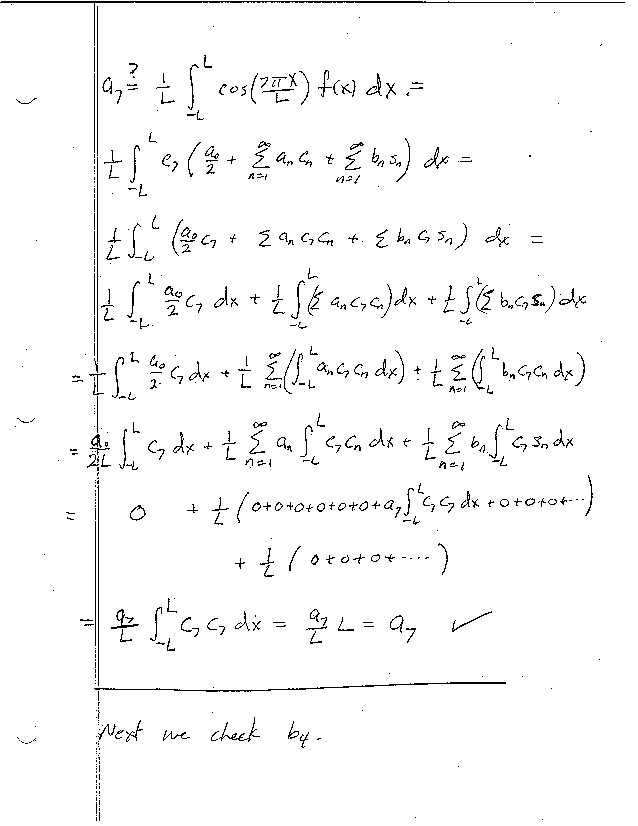 a₇ ≟ 1/L ∫_{-L}^{L} cos(7πx/L) f(x) dx =
1/L ∫_{-L}^{L} c₇ (a₀/2 + Σ_{n=1}^{∞} aₙ cₙ + Σ_{n=1}^{∞} bₙ sₙ) dx =
1/L ∫_{-L}^{L} (a₀/2 c₇ + Σ aₙ c₇ cₙ + Σ bₙ c₇ sₙ) dx =
1/L ∫_{-L}^{L} a₀/2 c₇ dx + 1/L ∫_{-L}^{L} (Σ aₙ c₇ cₙ) dx + 1/L ∫_{-L}^{L} (Σ bₙ c₇ sₙ) dx
= 1/L ∫_{-L}^{L} a₀/2 c₇ dx + 1/L Σ_{n=1}^{∞} (∫_{-L}^{L} aₙ c₇ cₙ dx) + 1/L Σ_{n=1}^{∞} (∫_{-L}^{L} bₙ c₇ cₙ dx)
= a₀/2L ∫_{-L}^{L} c₇ dx + 1/L Σ_{n=1}^{∞} aₙ ∫_{-L}^{L} c₇ cₙ dx + 1/L Σ_{n=1}^{∞} bₙ ∫_{-L}^{L} c₇ sₙ dx
= 0 + 1/L (0+0+0+0+0+0+a₇ ∫_{-L}^{L} c₇ c₇ dx + 0+0+0+···)
+ 1/L (0+0+0+····)
= a₇/L ∫_{-L}^{L} c₇ c₇ dx = a₇/L L = a₇ ✓
Next we check b₄.